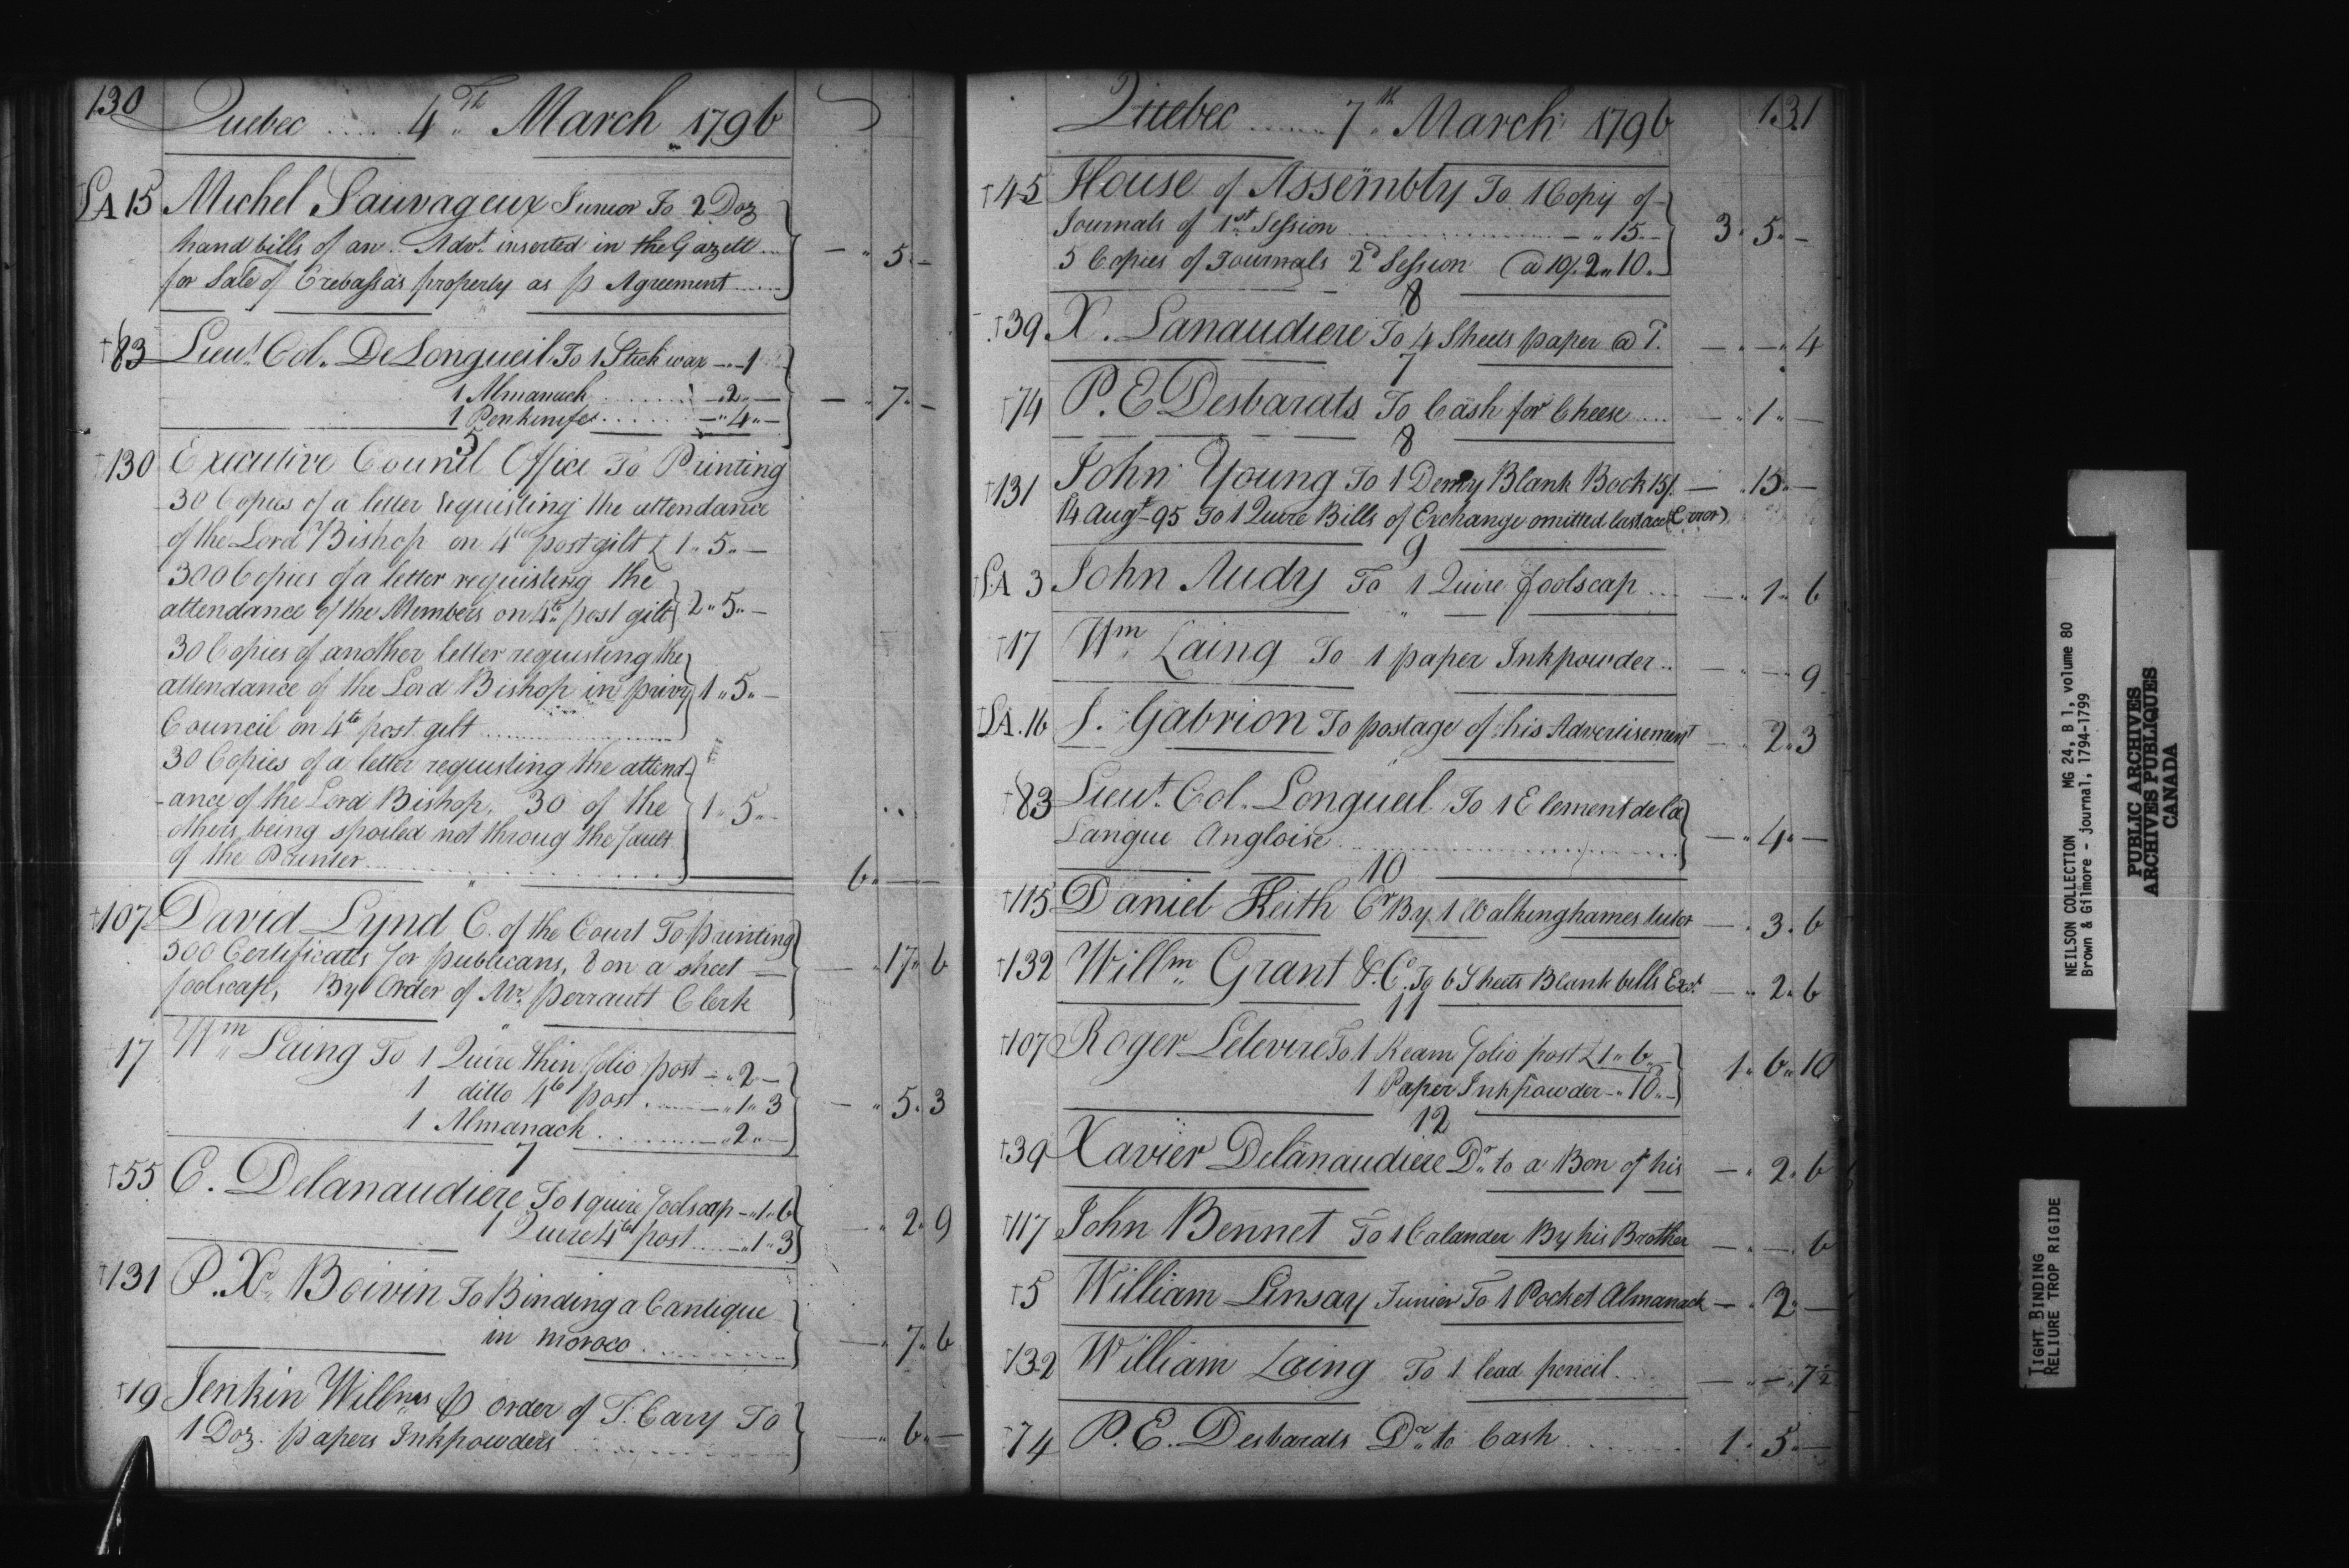 130
Quebec ...... 4th March 1796
SA 15 Michel Sauvageux Junior To 2 Doz
hand bills of an Advt. inserted in the Gazett...
for Sale of Crebassa's property as p Agreement...... — " 5 " —
†83 Lieut. Col. DeLongueil To 1 Stick wax — " 1
1 Almanack ........ — 2 " —
1 Penknife ........ — " 4 " — — " 7 " —
5
†130 Executive Council Office To Printing
30 Copies of a letter requisting the attendance
of the Lord Bishop on 4to post gilt £ 1 " 5 " —
300 Copies of a letter requisting the
attendance of the Members on 4to post gilt 2 " 5 " —
30 Copies of another letter requisting the
attendance of the Lord Bishop in privy 1 " 5 " —
Council on 4to post gilt ........
30 Copies of a letter requisting the attend-
-ance of the Lord Bishop, 30 of the 1 " 5 " —
others being spoiled not throug the fault
of the Printer........ 6 " — " —
"
†107 David Lynd C. of the Court To printing
500 Certificates for publicans, 8 on a sheet — — " 17 " 6
foolscap, By Order of Mr. perrault Clerk
"
†17 Wm Laing To 1 Quire thin folio post — " 2 —
1 ditto 4to post ........ — " 1 " 3 — " 5 " 3
1 Almanack ........ — " 2 " —
7
†55 C. Delanaudiere To 1 quire foolscap — " 1 " 6
1 Quire 4to post ...... — " 1 " 3 — " 2 " 9
†131 P. Xr. Boivin To Binding a Cantique
in moroco ........ — " 7 " 6
†19 Jenkin Willms p order of T. Cary To
1 Doz. papers Inkpowders ........ — " 6 " —
Quebec ...... 7th March 1796 131
†45 House of Assembly To 1 Copy of
Journals of 1st Session ........ — " 15 — 3 " 5 " —
5 Copies of Journals 2d Session @ 10/ 2 " 10 " —
8
†39 X. Lanaudiere To 4 Sheets paper @ 1. — " — " 4
7
†74 P. E Desbarats To Cash for Cheese .... — " 1 " —
8
†131 John Young To 1 Demy Blank Book 15/. — " 15 " —
14 Augt. 95 To 1 Quire Bills of Exchange omitted last acct (Error)
9
†SA 3 John Audy To 1 Quire foolscap ... — " 1 " 6
"
†17 Wm. Laing To 1 paper Inkpowder .. — " — " 9
†SA. 16 J. Gabrion To postage of his Advertisement — " 2 " 3
†83 Lieut. Col. Longueil To 1 Element de la
Langue Angloise ........ — " 4 " —
10
†115 Daniel Keith Cr By 1 Walkinghames tutor — " 3 " 6
†132 Willm. Grant & Co. To 6 Sheets Blank bills Exc. — " 2 " 6
11
†107 Roger Lelevre To 1 Ream folio post £ 1 " 6 " —
1 Paper Inkpowder — " 10 " — 1 " 6 " 10
12
†39 Xavier Delanaudiere Dr. to a Bon of his — " 2 " 6
†117 John Bennet To 1 Calander By his Brother — " — " 6
†5 William Linsay Junior To 1 Pocket Almanack — " 2 " —
†132 William Laing To 1 lead pencil .... — " — " 7½
74 P. E. Desbarats Dr. to Cash ........ 1 " 5 " —
NEILSON COLLECTION MG 24, B 1, volume 80
Brown & Gilmore - journal, 1794-1799
PUBLIC ARCHIVES
ARCHIVES PUBLIQUES
CANADA
TIGHT BINDING
RELIURE TROP RIGIDE